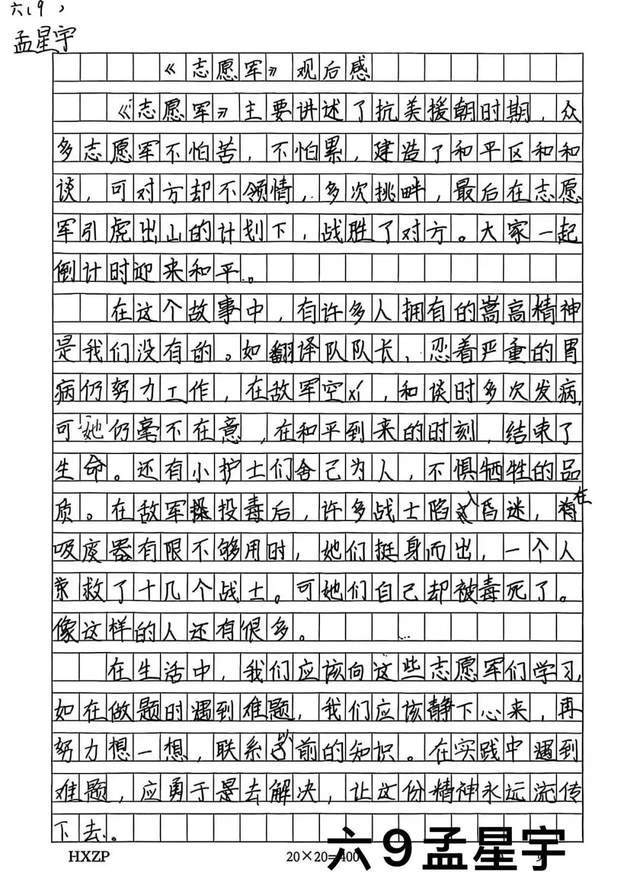 六(9)
孟星宇
《志愿军》观后感
《志愿军》主要讲述了抗美援朝时期，众
多志愿军不怕苦，不怕累，建造了和平区和和
谈，可对方却不领情，多次挑衅，最后在志愿
军引虎出山的计划下，战胜了对方。大家一起
倒计时迎来和平。
在这个故事中，有许多人拥有的嵩高精神
是我们没有的。如翻译队队长，忍着严重的胃
病仍努力工作，在敌军空，和谈时多次发病，
可她仍毫不在意，在和平到来的时刻，结束了
生命。还有小护士们舍己为人，不惧牺牲的品
质。在敌军投毒后，许多战士陷入昏迷，在
吸痰器有限不够用时，她们挺身而出，一个人
救了十几个战士。可她们自己却被毒死了。
像这样的人还有很多。
在生活中，我们应该向这些志愿军们学习，
如在做题时遇到难题，我们应该静下心来，再
努力想一想，联系前的知识。在实践中遇到
难题，应勇于是去解决，让这份精神永远流传
下去。
HXZP 20×20=400
六9孟星宇